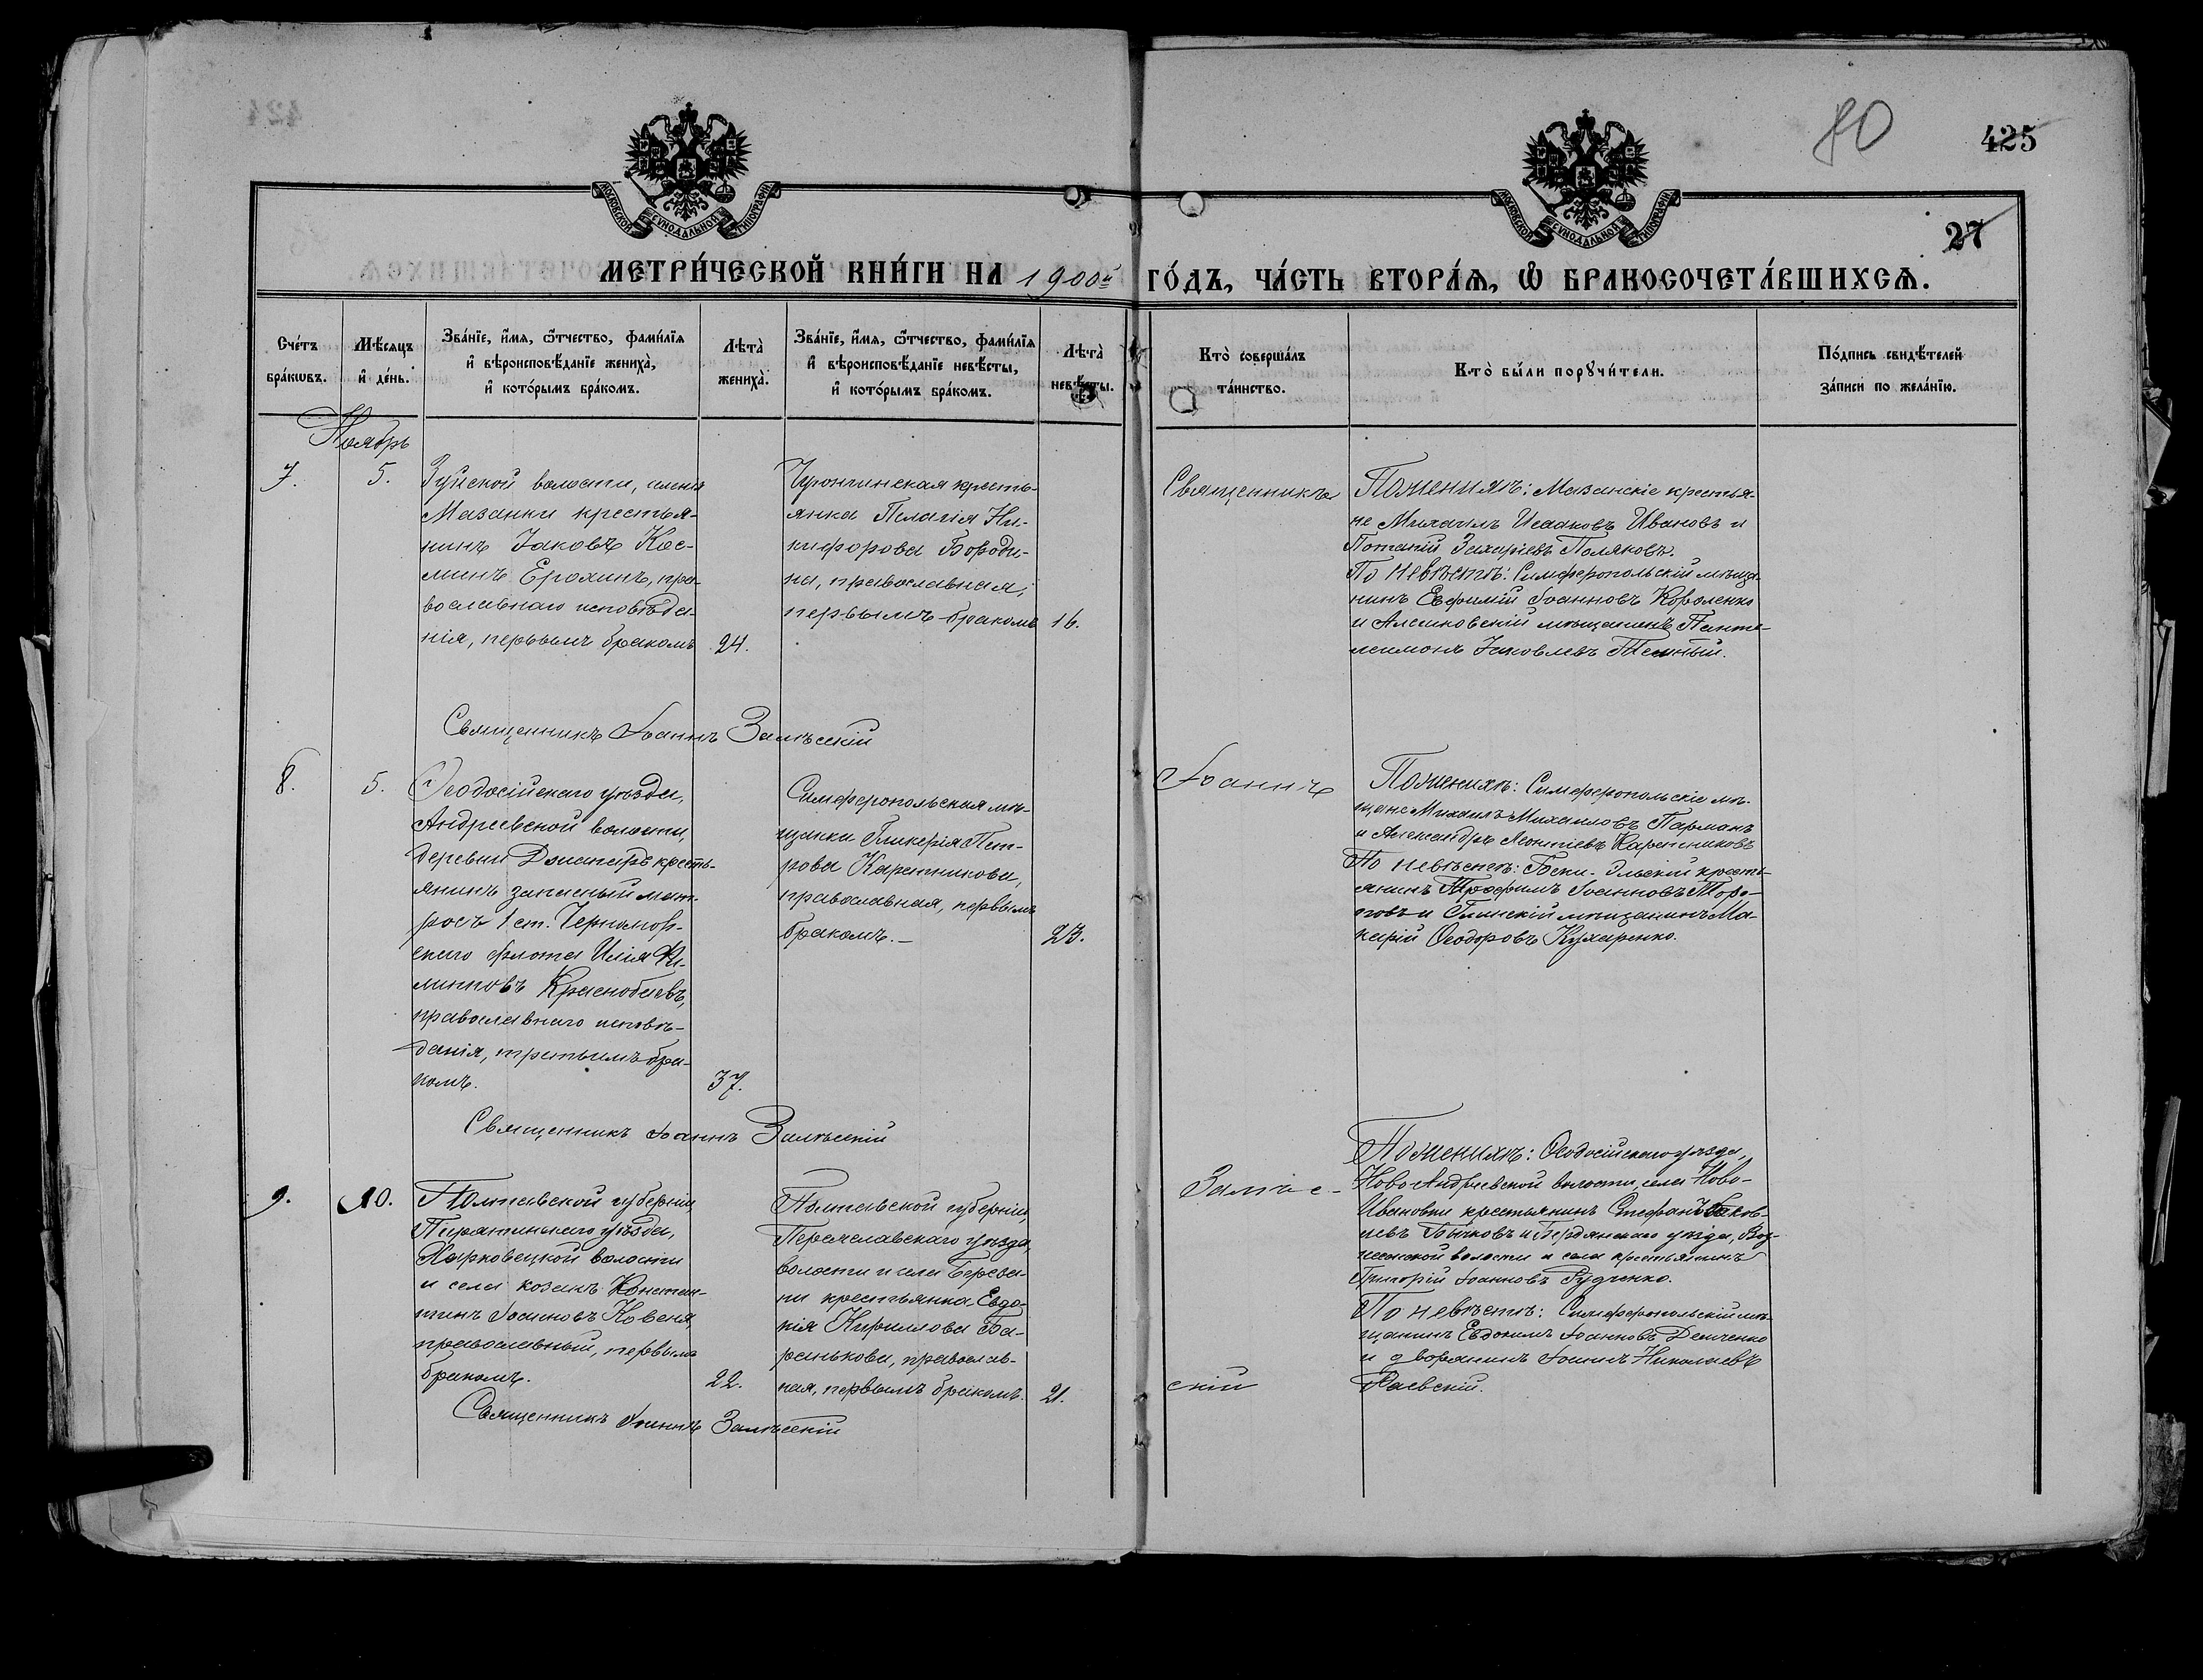 80
425
27
МОСКОВСКОЙ СѴНОДАЛЬНОЙ ТИПОГРАФІИ
МОСКОВСКОЙ СѴНОДАЛЬНОЙ ТИПОГРАФІИ
МЕТРИ́ЧЕСКОЙ КНИ́ГИ НА 1900й ГО́ДЪ, ЧА́СТЬ ВТОРА́Ѧ, Ѡ БРАКОСОЧЕТА́ВШИХСѦ.
Сче́тъ бра́кѡвъ.
Мѣ́сяцъ и де́нь.
Зва́нїе, и́мѧ, ѻ́тчество, фами́лїѧ и вѣроисповѣ́данїе жениха̀, и кото́рымъ бра́комъ.
Лѣта̀ жениха̀.
Зва́нїе, и́мѧ, ѻ́тчество, фами́лїѧ и вѣроисповѣ́данїе невѣ́сты, и кото́рымъ бра́комъ.
Лѣта̀ невѣ́сты.
Кто̀ соверша́лъ та́инство.
Кто̀ бы́ли порꙋчи́тели.
По́дпись свидѣ́телей за́писи по жела́нїю.
Ноябрь
7.
5.
Зуйской волости, имения
Мазанки крестья-
нинъ Іаковъ Кос-
минъ Ерохинъ, пра-
вославнаго исповѣда-
нія, первымъ бракомъ
24.
крестья-
янка Пелагія Ни-
кифорова Бороди-
на, православная,
первымъ бракомъ
16.
Священникъ
По женихѣ: Мазанскіе крестья-
не Михаилъ Исааковъ Ивановъ и
Потапій Захаріевъ Поляковъ.
По невѣстѣ: Симферопольскій мѣща-
нинъ Евфимій Іоанновъ Коваленко
и Алешковскій мѣщанинъ Панте-
леимонъ Іаковлевъ Темный.
Священникъ Іоаннъ Залѣсскій
8.
5.
Ѳеодосійскаго уѣзда,
Андреевской волости,
деревни Джапаръ кресть-
янинъ запасный мат-
росъ 1 ст. Черномор-
скаго флота Илія Фи-
липповъ Краснобаевъ,
православнаго исповѣ-
данія, третьимъ бра-
комъ.
37.
Симферопольская мѣ-
щанка Гликерія Пет-
рова Каретникова,
православная, первымъ
бракомъ.-
23.
Іоаннъ
По женихѣ: Симферопольскіе мѣ-
щане Михаилъ Михаиловъ Парманъ
и Александръ Леонтіевъ Каретниковъ
По невѣстѣ: крестья-
янинъ Трофимъ Іоанновъ Торо-
повъ и Глинскій мѣщанинъ Ма-
карій Ѳеодоровъ Кухаренко.
Священникъ Іоаннъ Залѣсскій
9.
10.
Полтавской губерніи,
Пирятинскаго уѣзда,
Харковецкой волости
и села козакъ Констан-
тинъ Іоанновъ Ковеня,
православный, первымъ
бракомъ.
22.
Полтавской губерніи,
Переяславскаго уѣзда,
волости и села Березя-
ни крестьянка Евдо-
кія Кириллова Ба-
ранькова, православ-
ная, первымъ бракомъ.
21.
Залѣс-
скій
По женихѣ: Ѳеодосійскаго уѣзда,
Ново Андреевской волости, села Ново-
Ивановки крестьянинъ Стефанъ Іаков-
левъ Бычковъ и Бердянскаго уѣзда, Воз-
несенской волости и села крестьянинъ
Григорій Іоанновъ Рудченко.
По невѣстѣ: Симферопольскій мѣ-
щанинъ Евдокимъ Іоанновъ Демченко
и дворянинъ Іоаннъ Николаевъ
Раевскій.
Священникъ Іоаннъ Залѣсскій